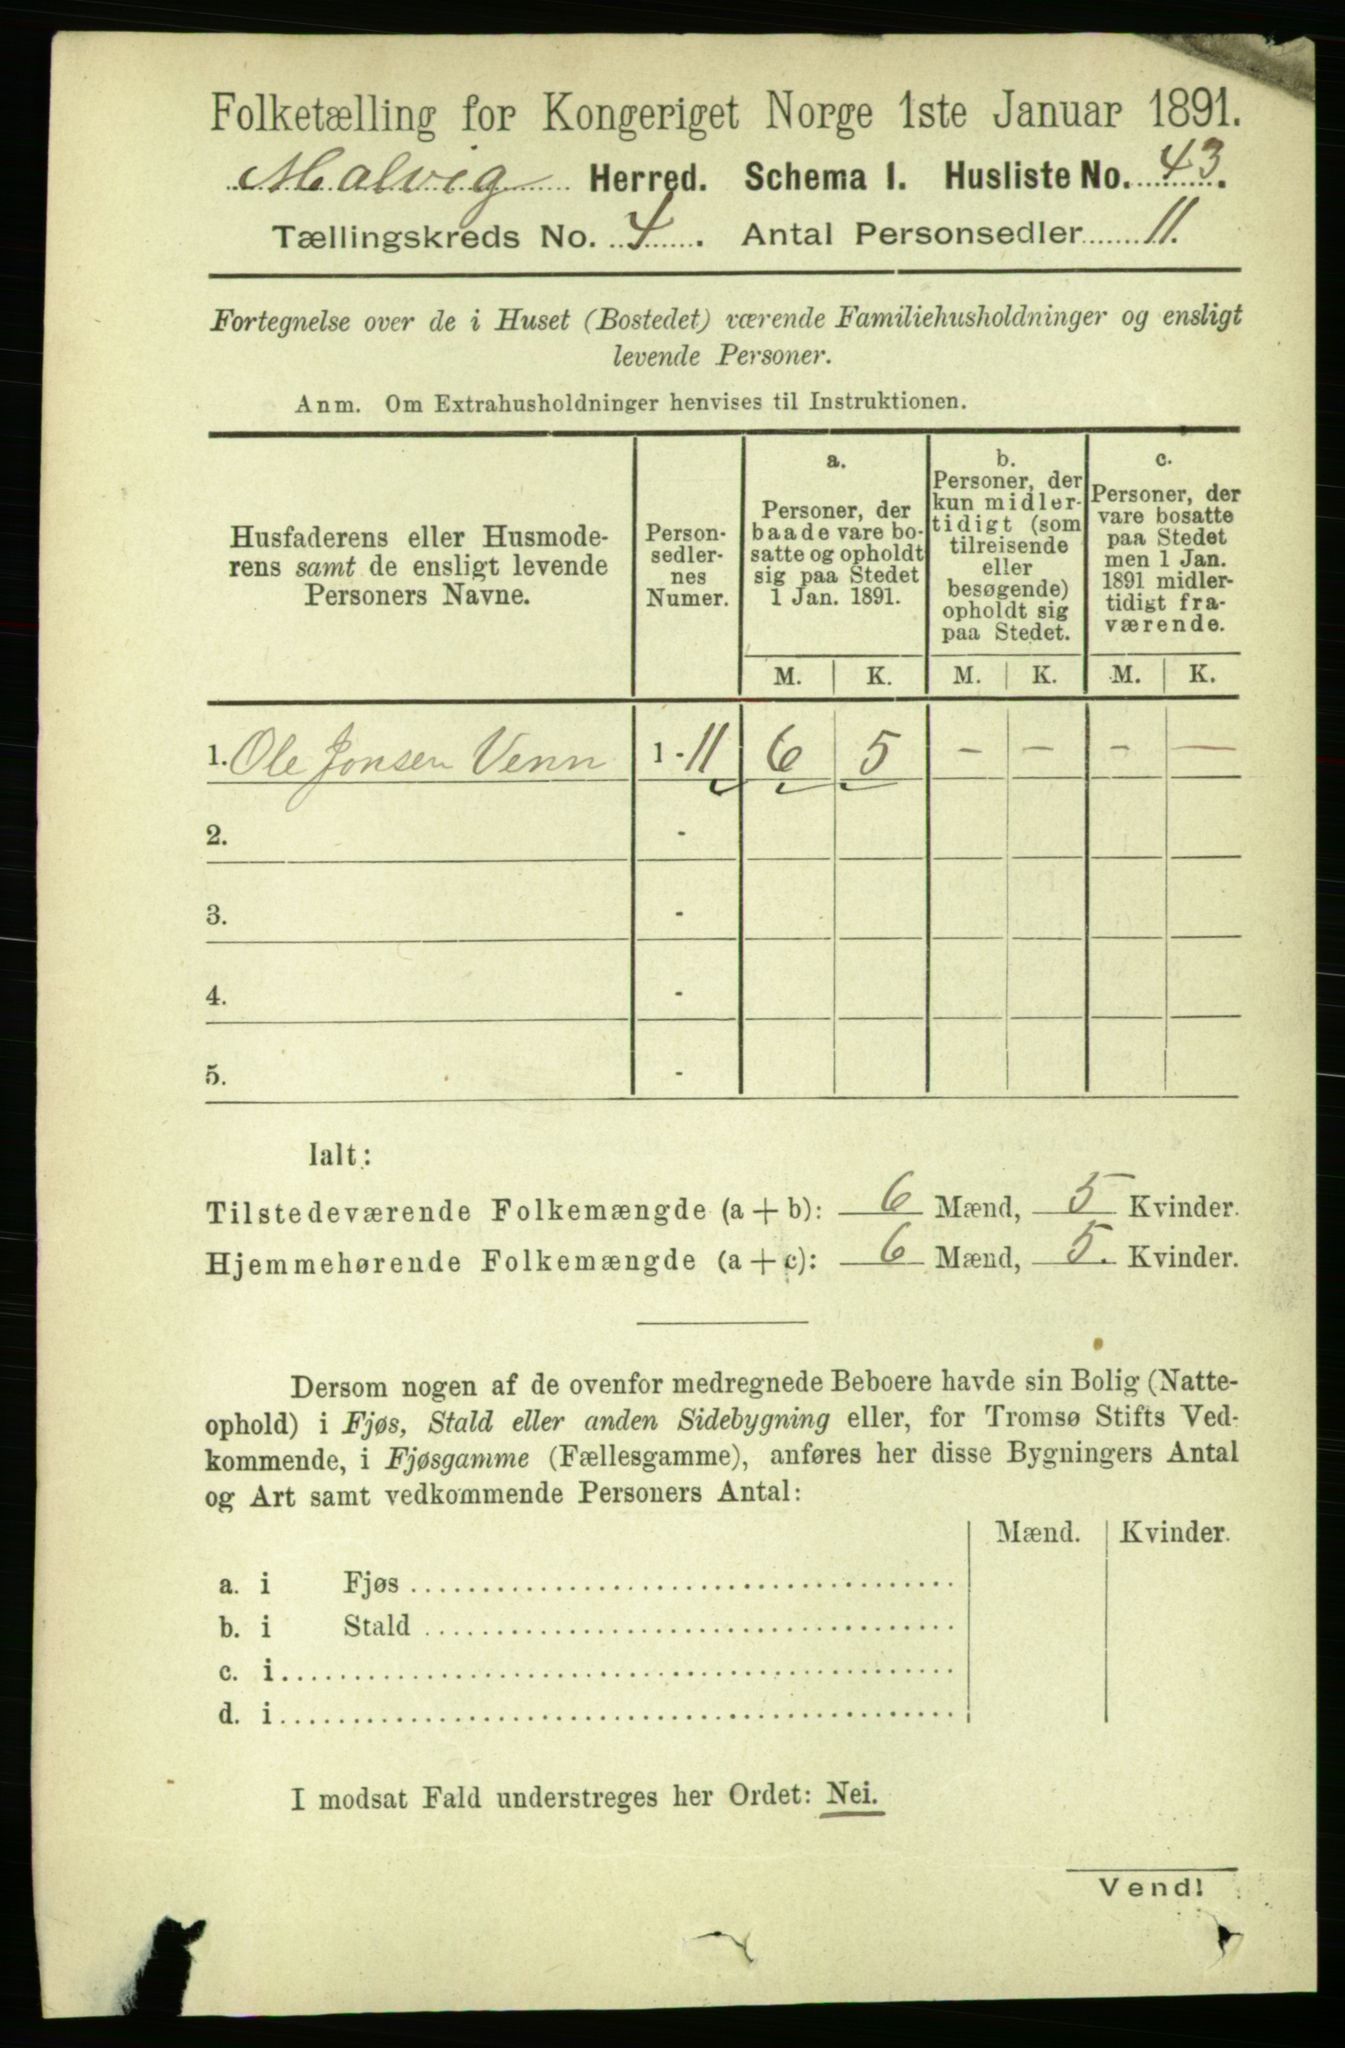 Folketælling for Kongeriget Norge 1ste Januar 1891.
Malvig Herred. Schema 1. Husliste No. 43.
Tællingskreds No. 4. Antal Personsedler 11.
Fortegnelse over de i Huset (Bostedet) værende Familiehusholdninger og ensligt
levende Personer.
Anm. Om Extrahusholdninger henvises til Instruktionen.
Husfaderens eller Husmode-
rens samt de ensligt levende
Personers Navne.
Person-
sedler-
nes
Numer.
a.
Personer, der
baade vare bo-
satte og opholdt
sig paa Stedet
1 Jan. 1891.
b.
Personer, der
kun midler-
tidigt (som
tilreisende
eller
besøgende)
opholdt sig
paa Stedet.
c.
Personer, der
vare bosatte
paa Stedet
men 1 Jan.
1891 midler-
tidigt fra-
værende.
M. K. M. K. M. K.
1. Ole Jonsen Venn 1 - 11 6 5 - - - -
2. -
3. -
4. -
5. -
Ialt:
Tilstedeværende Folkemængde (a + b): 6 Mænd, 5 Kvinder.
Hjemmehørende Folkemængde (a + c): 6 Mænd, 5. Kvinder.
Dersom nogen af de ovenfor medregnede Beboere havde sin Bolig (Natte-
ophold) i Fjøs, Stald eller anden Sidebygning eller, for Tromsø Stifts Ved-
kommende, i Fjøsgamme (Fællesgamme), anføres her disse Bygningers Antal
og Art samt vedkommende Personers Antal:
Mænd. Kvinder.
a. i Fjøs
b. i Stald
c. i
d. i
I modsat Fald understreges her Ordet: Nei.
Vend!